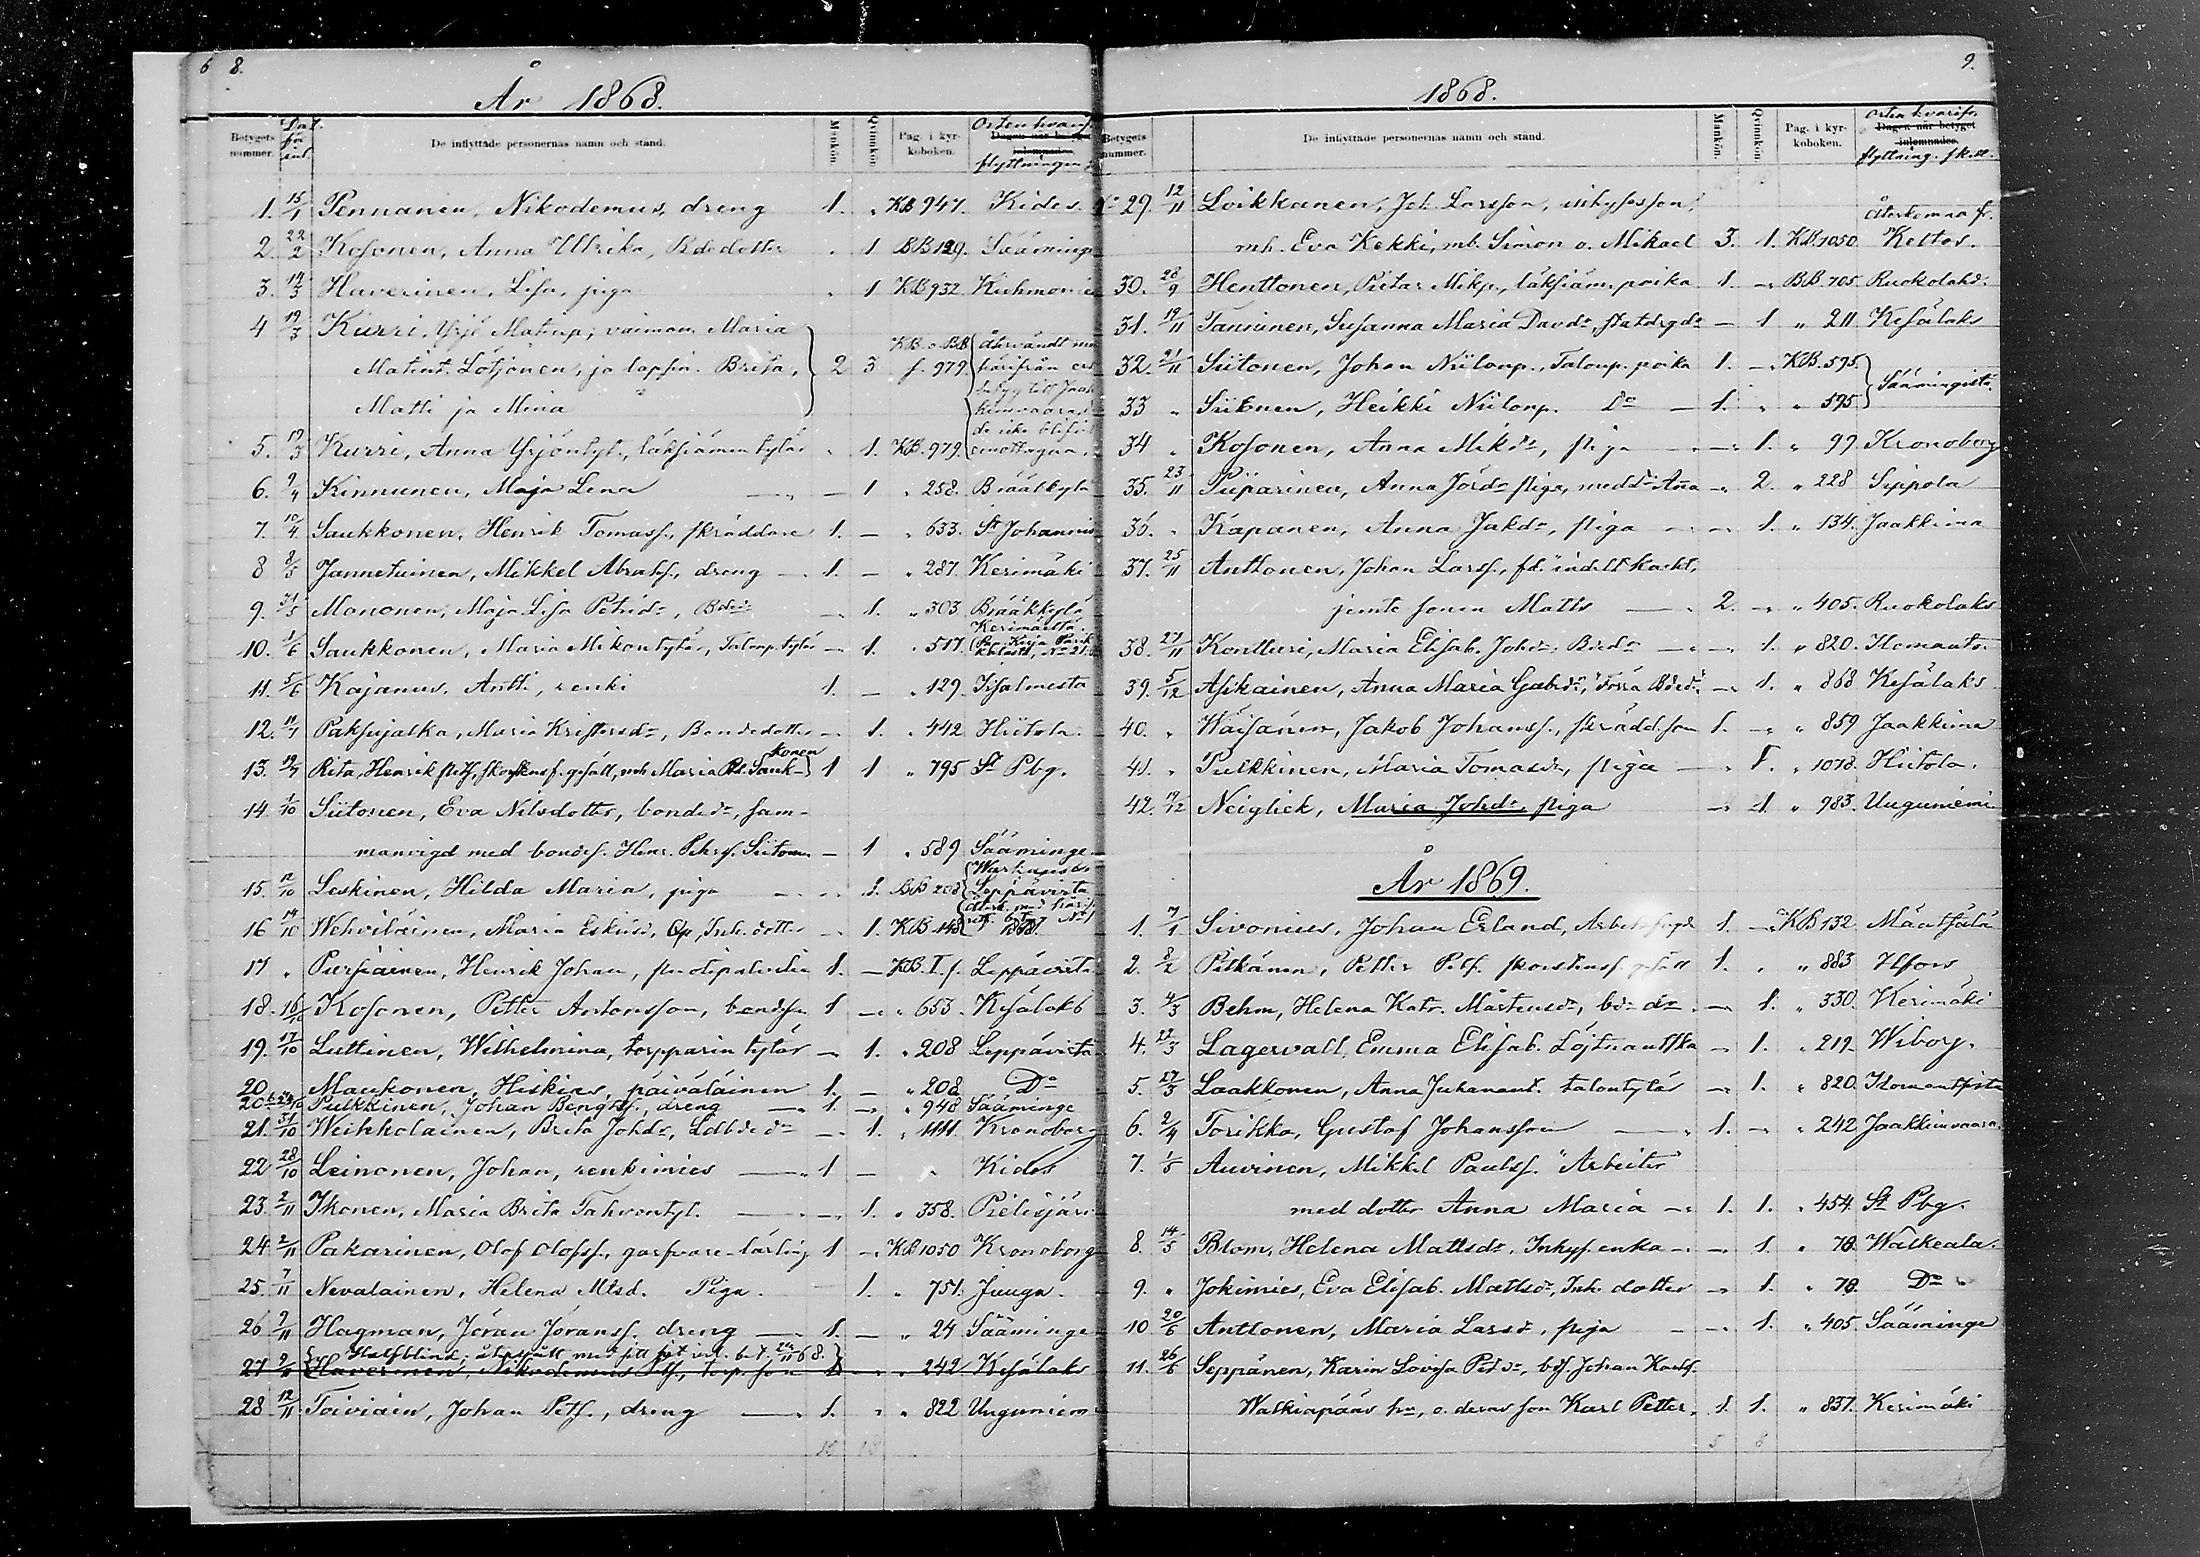 6 8.
År 1868.
Betygets nummer. Dat. för inl. De inflyttade personernas namn och stånd. Mankön. Qvinkön. Pag. i kyrkoboken. Orten hvarifr. Dagen när betyget inlemnades. flyttningen
1. 15/1 Pennanen, Nikodemus, dreng 1. „ KB 947. Kides.
2. 22/2 Kosonen, Anna Ullrika, Bdedotter „ 1 BB 129. Sääminge
3. 14/3 Haverinen, Lisa, piga „ 1 KB 932. Kuhmonie
4 19/3 Kurri, Yrjö Matinp., vaimon. Maria
Matint. Lötjönen, ja lapsin. Brita, 2 3 KB o BB f. 979. återvändt
Matti ja Mina
5. 19/3 Kurri, Anna Yrjöntyt., läksiämen tytär „ 1. KB. 979.
6. 9/4 Kinnunen, Maja Lena — 1 „ 258. Bräälkylä
7. 10/4 Saukkonen, Henrik Tomass., skräddare 1. — „ 633. St Johannis
8 8/5 Jannetuinen, Mikkel Abrahs., dreng 1. — „ 287. Kerimäki
9. 31/5 Manonen, Maja Lisa Petrid:r, — 1. „ 303 Bräkkylä
10. 1/6 Saukkonen, Maria Mikontytär, Talonp. tytär — 1. „ 517. Kerimäeltä.
11. 5/6 Kajanus, Antti, renki 1. — „ 129. Iisalmesta
12. 11/7 Paksujalka, Maria Kristersd:r, Bondedotter — 1. „ 442 Hiitola.
13. 19/7 Rita, Henrik Pets., skorstensf. gesäll, mh Maria Pd. Saukkonen 1 1 „ 795 St Pbg.
14. 1/10 Siitonen, Eva Nilsdotter, bonded:r, sam-
manvigd med bondes. Henr. Pehrs. Siitonen — 1 „ 589 Sääminge
15. 11/10 Leskinen, Hilda Maria, piga 1. BB 208 Leppävirta
16 14/10 Wehviläinen, Maria Eskilsd, Inh. dotter — 1. KB 148 1868.
17 „ Pursiainen, Henrik Johan, 1. — KB. I f. Leppävirta
18. 16/10 Kosonen, Petter Antonsson, bondeson 1 — „ 653. Kesälaks
19. 17/10 Luttinen, Wilhelmina, torpparin tytär — 1. „ 208 Leppävirta
20 Maukonen, Hiskias, päiväläinen 1. — „ 208 D:o
20 Pulkkinen, Johan Bengtss., dreng 1. — „ 948 Sääminge
21. 31/10 Weikkolainen, Brita Johd:r — 1. „ 1111. Kronoborg
22 28/10 Leinonen, Johan, renkimies 1 — „ Kides
23. 2/11 Ikonen, Maria Brita Tahvontyt. — 1. „ 358. Pielisjärvi
24. 2/11 Pakarinen, Olof Olofss., garfvare-lärling 1 — KB 1050 Kronoborg
25. 7/11 Nevalainen, Helena Mtsd. Piga. 1. „ 751. Juuga.
26 7/11 Hagman, Jöran Jöranss. dreng 1. — „ 24 Sääminge
Halfblind; återgått med sitt bet.
27 9/11 Haverinen, Nikodemus Pets., torp. son 1 „ 242 Kesälaks
28 12/11 Toiviain, Johan Pets., dreng 1. „ „ 822 Uuguniemi
18 18
1868. 9.
Betygets nummer. De inflyttade personernas namn och stånd. Mankön. Qvinkön. Pag. i kyrkoboken. Orten hvarifr. Dagen när betyget inlemnades. flyttning. skett.
29. 12/11 Loikkanen, Joh. Larsson, inhysesson,
mh. Eva Kekki, mb. Simon o. Mikael 3. 1. KB. 1050. återkomna fr. Keltos.
30. 28/9 Henttonen, Pietar Mikp., läksiäm. poika 1. — BB. 705 Ruokolaks.
31. 19/11 Tanninen, Susanna Maria Davd:r, statdrgd:r — 1 „ 211 Kesälaks
32. 21/11 Siitonen, Johan Niilonp., Talonp. poika 1. — KB. 595. Säämingistä.
33 „ Siitonen, Heikki Niilonp. D:o 1. „ „ 595
34 „ Kosonen, Anna Mikd:r, piga — 1. „ 97 Kronoborg
35. 23/11 Piiparinen, Anna Jörd:r piga, med d:r Anna — 2. „ 228 Sippola
36. „ Kapanen, Anna Jakd:r, piga — 1. „ 134. Jaakkima
37. 25/11 Anttonen, Johan Larss., fd. indelt karl,
jemte sonen Matts 2. — „ 405. Ruokolaks
38. 27/11 Kontturi, Maria Elisab. Johd:r, Bded:r — 1. „ 820. Ilomants.
39. 5/12 Asikainen, Anna Maria Gabrd:r, — 1. „ 868 Kesälaks
40. „ Wäisänen, Jakob Johanss., skrädd. son 1. — „ 859 Jaakkima
41. „ Pulkkinen, Maria Tomasd:r, piga — 1. „ 1078. Hiitola.
42. 19/12 Neiglick, Maria Johd:r, piga — 1. „ 983. Uuguniemi
År 1869.
1. 7/1 Sivonius, Johan Erland, Arbetsfogd 1. — KB 132 Mäntsälä
2. 8/2 Pitkänen, Petter Pets. skorstensf. gesäll 1. „ „ 883 Hfors
3. 4/3 Behm, Helena Katr. Mårtensd:r, bd:e d:r — 1. „ 330. Kerimäki
4. 22/3 Lagervall, Emma Elisab. Löjtnantska — 1. „ 219. Wiborg.
5. 27/3 Laakkonen, Anna Juhanant. talontytär — 1. „ 820. Ilomantsista
6. 2/4 Torikka, Gustaf Johansson 1. — „ 242 Jaakkimvaara
7. 1/5 Auvinen, Mikkel Paulss. "Arbeiter"
med dotter Anna Maria — 1. 1. „ 454. St Pbg.
8. 14/5 Blom, Helena Mattsd:r, Inhys. enka — 1. „ 78. Walkeala.
9. „ Jokimies, Eva Elisab. Mattsd:r, Inh. dotter — 1. „ 78. D:o
10 20/6 Anttonen, Maria Larsd., piga — 1. „ 405 Sääminge
11. 26/6 Seppänen, Karin Lovisa Petd:r, bds. Johan Karlss.
Walkiapääs hu, o. deras son Karl Petter, 1. 1. „ 837. Kerimäki
5 8